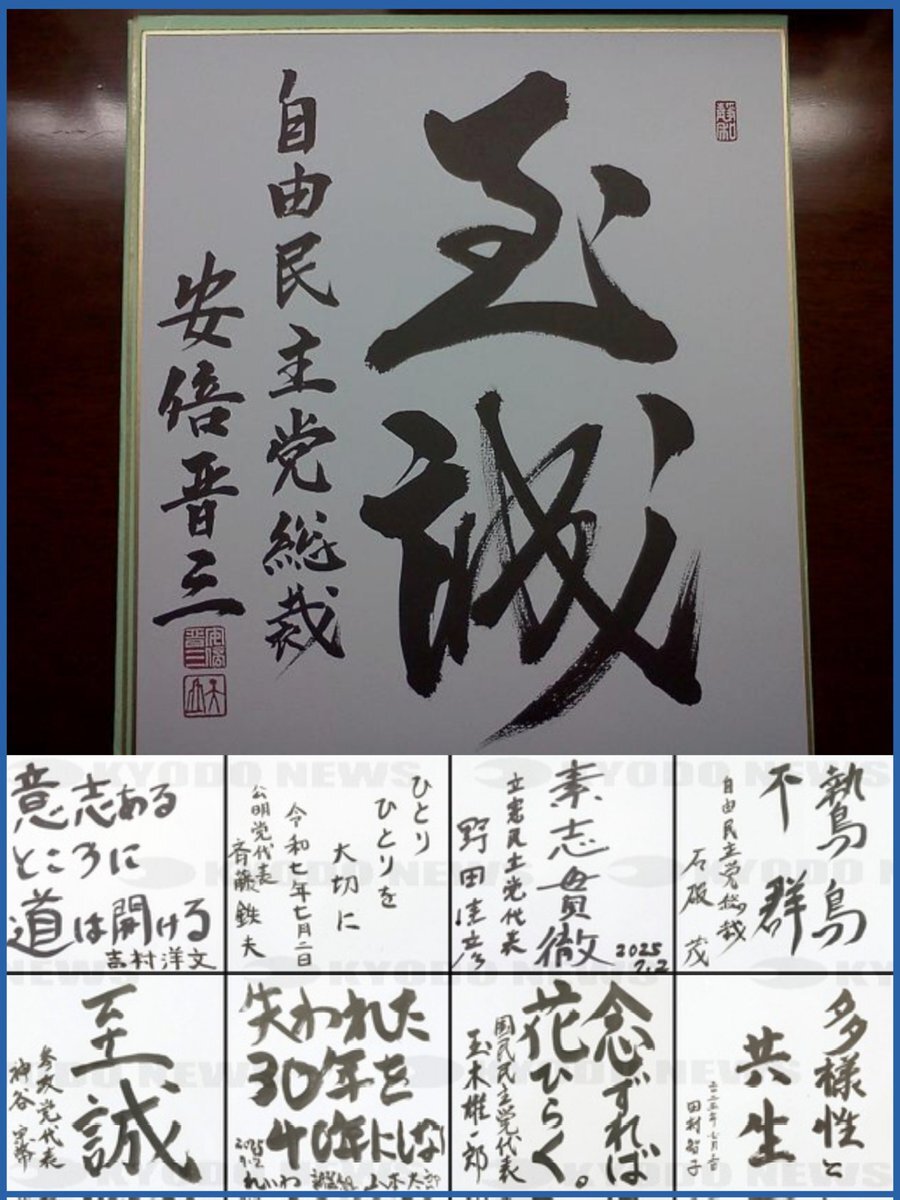 至誠
自由民主党総裁
安倍晋三
意志ある
ところに
道は開ける
吉村洋文
ひとり
ひとりを
大切に
令和七年七月二日
公明党代表
斉藤鉄夫
素志貫徹
2025
7.2
立憲民主党代表
野田佳彦
鷙鳥
不群
自由民主党総裁
石破 茂
至誠
参政党代表
神谷宗幣
失われた
30年を
40年にしな
2025
7.2
れいわ 新選組 山本太郎
念ずれば
花ひらく。
国民民主党代表
玉木雄一郎
多様性と
共生
田村智子
KYODO NEWS
KYODO NEWS
KYODO NEWS
KYODO NEWS